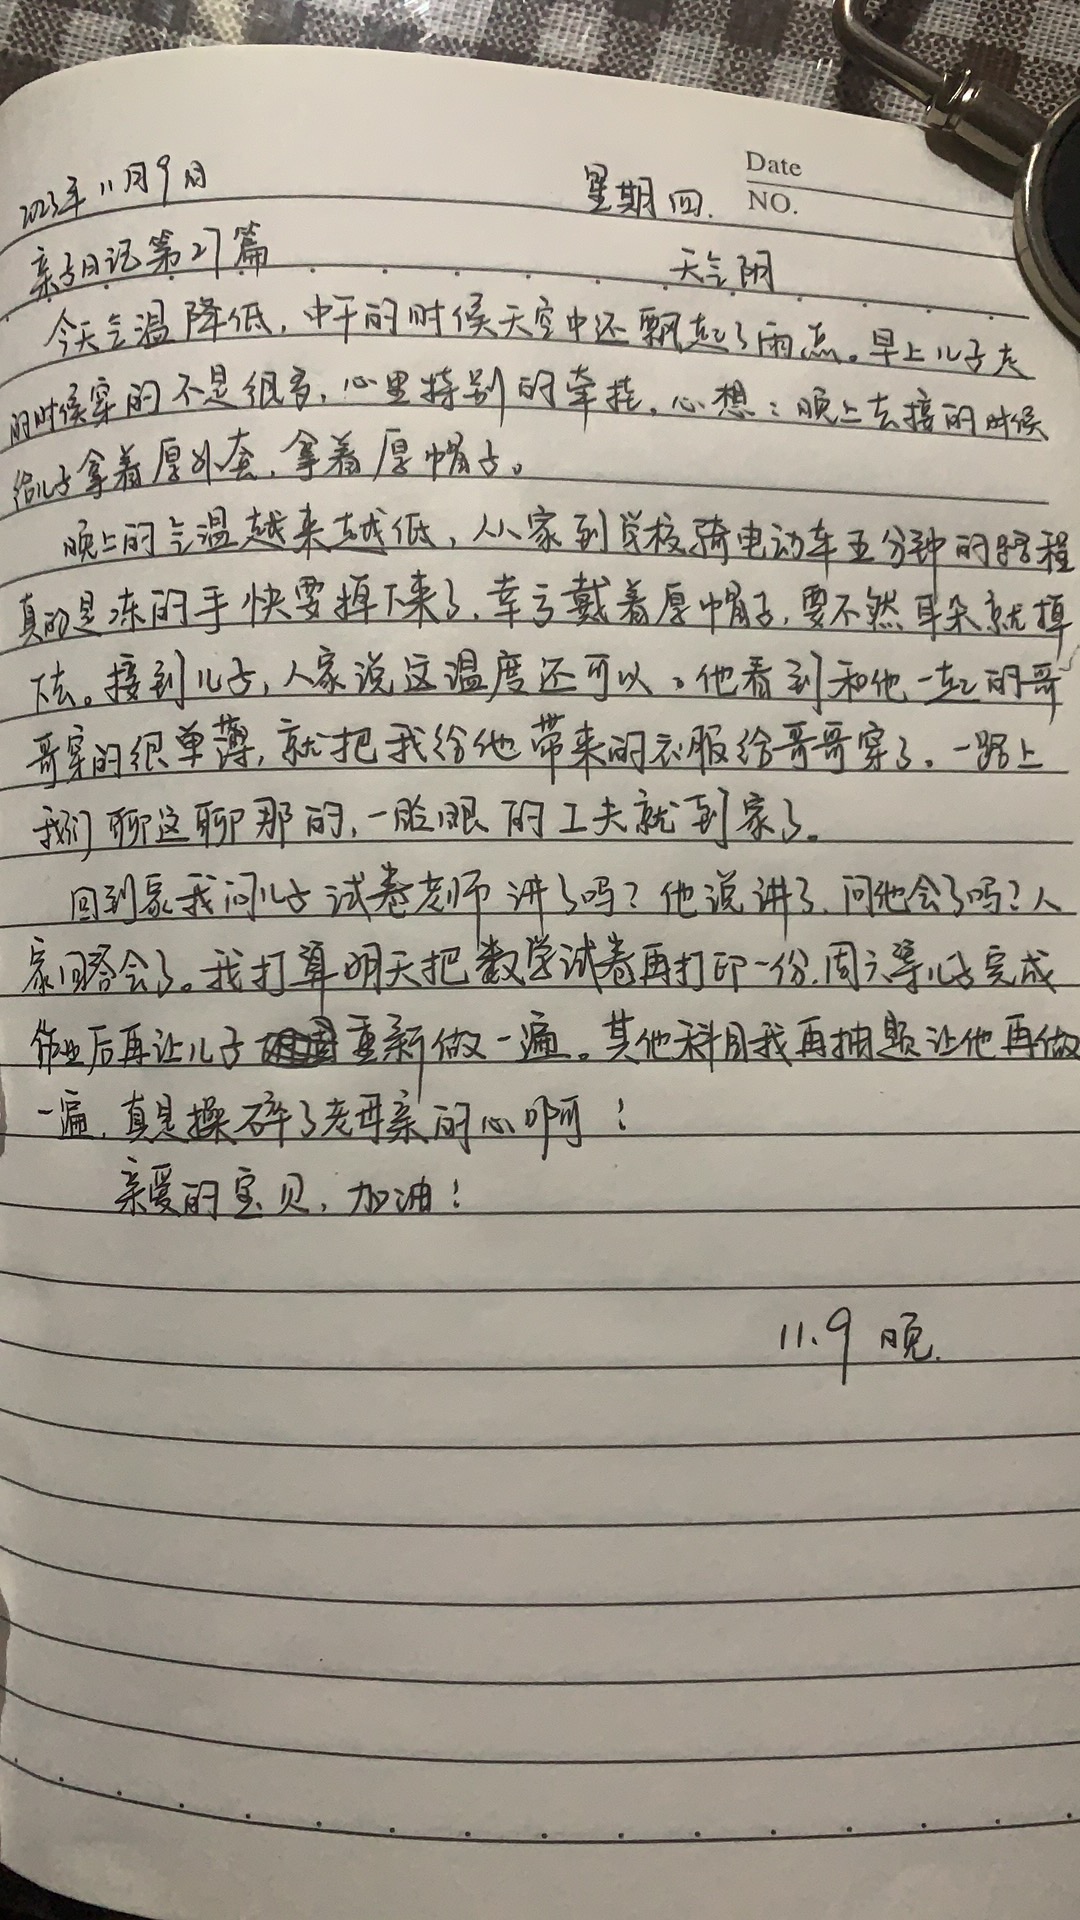 Date
2023年11月9日 星期四. NO.
亲子日记第27篇 天气阴
今天气温降低，中午的时候天空中还飘起了雨点。早上儿子走
的时候穿的不是很多，心里特别的牵挂，心想：晚上去接的时候
给儿子拿着厚外套，拿着厚帽子。
晚上的气温越来越低，从家到学校骑电动车五分钟的路程
真的是冻的手快要掉下来了，幸亏戴着厚帽子，要不然耳朵就掉
下去。接到儿子，人家说这温度还可以，他看到和他一起的哥
哥穿的很单薄，就把我给他带来的衣服给哥哥穿了。一路上
我们聊这聊那的，一眨眼的工夫就到家了。
回到家我问儿子试卷老师讲了吗？他说讲了，问他会了吗？人
家回答会了。我打算明天把数学试卷再打印一份，周六等儿子完成
作业后再让儿子重新做一遍。其他科目我再抽题让他再做
一遍，真是操碎了老母亲的心啊！
亲爱的宝贝，加油！
11.9 晚.